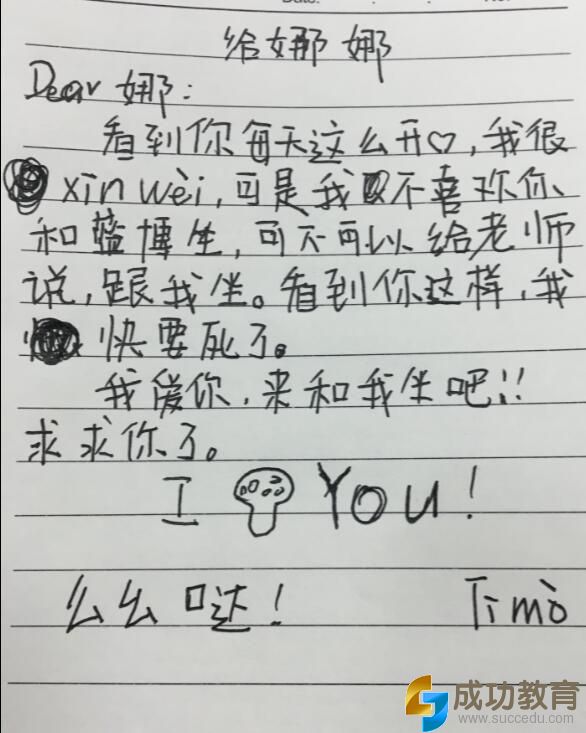 给娜娜
Dear 娜:
看到你每天这么开♡,我很
xīn wèi,可是我不喜欢你
和蓝博生,可不可以给老师
说,跟我坐。看到你这样,我
快要死了。
我爱你,来和我坐吧!!
求求你了。
I You!
么么哒! Ti mò
成功教育
www.succedu.com